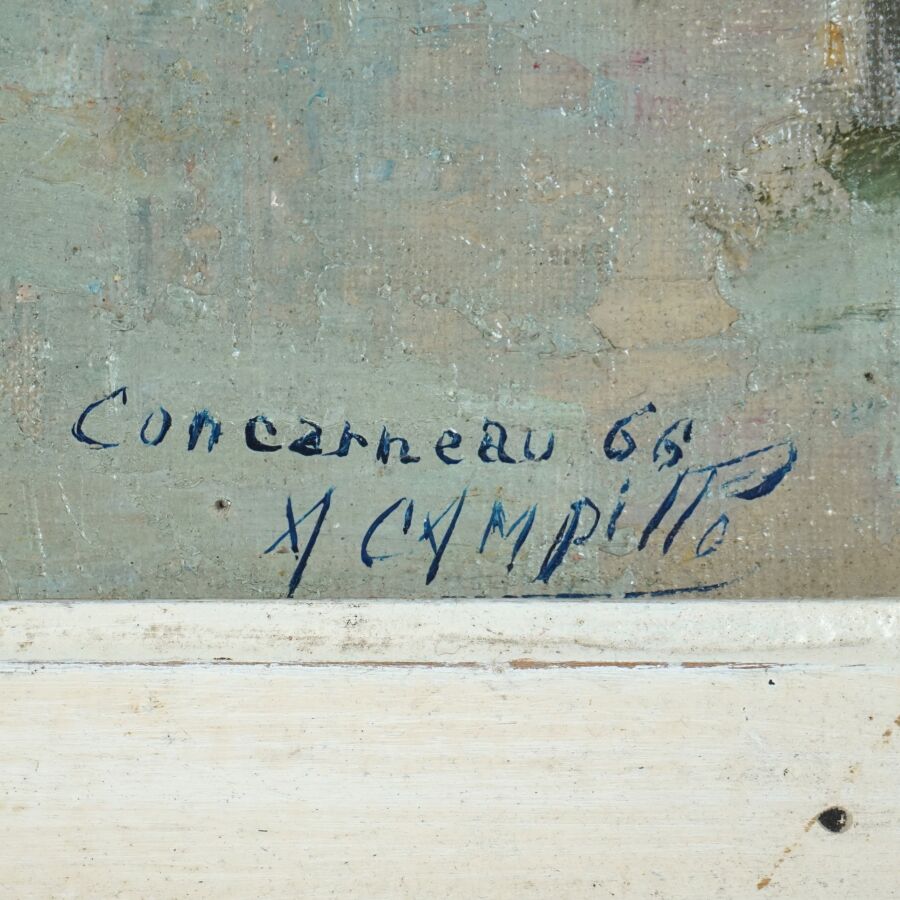 Concarneau 66
A CAMPILLO